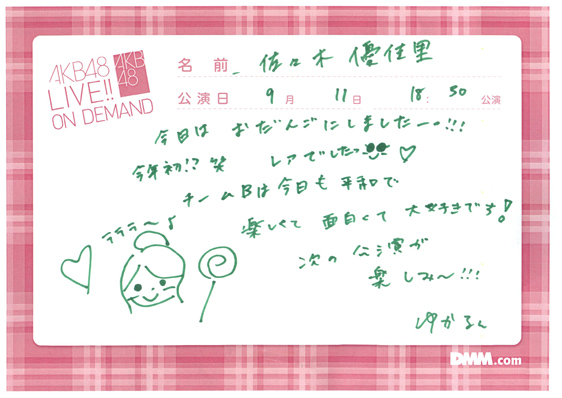 AKB48
LIVE!!
ON DEMAND
AKB
48
名前 佐々木 優佳里
公演日 9月 11日 18:30 公演
今日は おだんごにしましたー!!!
今年初!? 笑 レアでしたっ
チームBは今日も 平和で
楽しくて 面白くて 大好きです!
ラララ〜♪
次の 公演が
楽しみ〜!!!
ゆかるん
DMM.com